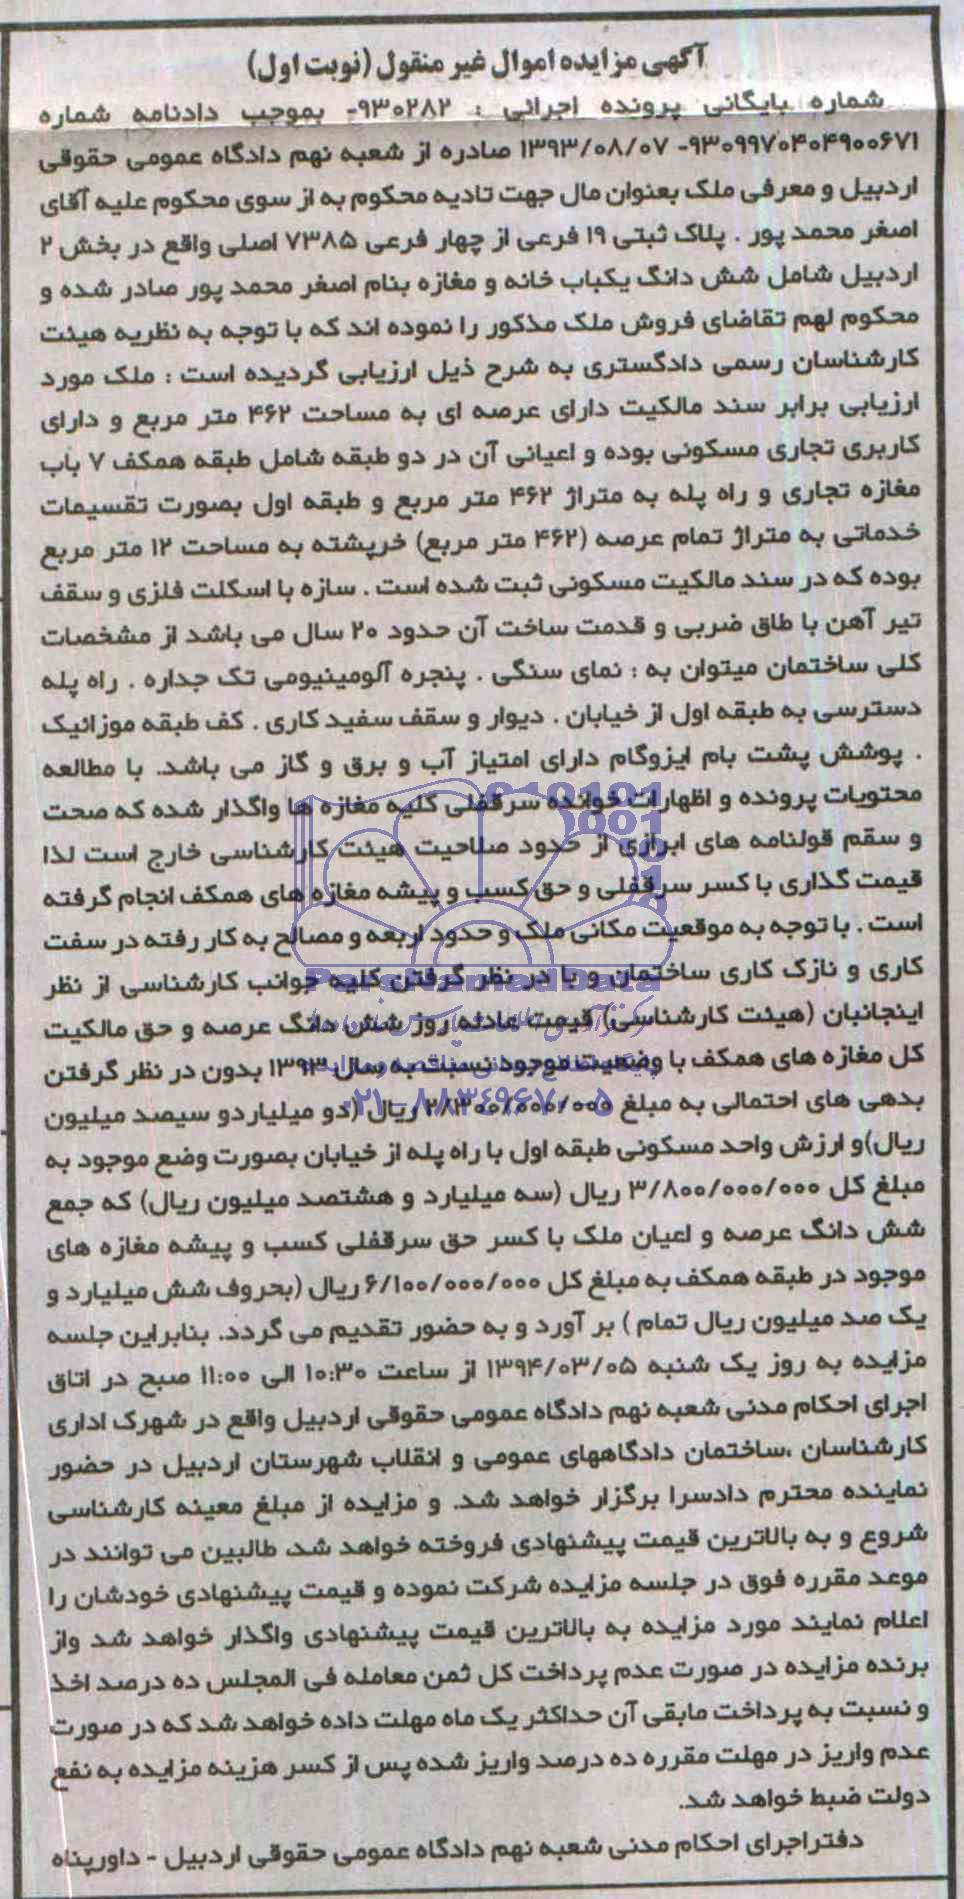 آگهی مزایده اموال غیر منقول (نوبت اول)
شماره بایگانی پرونده اجرائی : ۹۳۰۲۸۲- بموجب دادنامه شماره
۹۳۰۹۹۷۰۴۰۴۹۰۰۶۷۱- ۱۳۹۳/۰۸/۰۷ صادره از شعبه نهم دادگاه عمومی حقوقی
اردبیل و معرفی ملک بعنوان مال جهت تادیه محکوم به از سوی محکوم علیه آقای
اصغر محمد پور . پلاک ثبتی ۱۹ فرعی از چهار فرعی ۷۳۸۵ اصلی واقع در بخش ۲
اردبیل شامل شش دانگ یکباب خانه و مغازه بنام اصغر محمد پور صادر شده و
محکوم لهم تقاضای فروش ملک مذکور را نموده اند که با توجه به نظریه هیئت
کارشناسان رسمی دادگستری به شرح ذیل ارزیابی گردیده است : ملک مورد
ارزیابی برابر سند مالکیت دارای عرصه ای به مساحت ۴۶۲ متر مربع و دارای
کاربری تجاری مسکونی بوده و اعیانی آن در دو طبقه شامل طبقه همکف ۷ باب
مغازه تجاری و راه پله به متراژ ۴۶۲ متر مربع و طبقه اول بصورت تقسیمات
خدماتی به متراژ تمام عرصه (۴۶۲ متر مربع) خرپشته به مساحت ۱۲ متر مربع
بوده که در سند مالکیت مسکونی ثبت شده است . سازه با اسکلت فلزی و سقف
تیر آهن با طاق ضربی و قدمت ساخت آن حدود ۲۰ سال می باشد از مشخصات
کلی ساختمان میتوان به : نمای سنگی . پنجره آلومینیومی تک جداره . راه پله
دسترسی به طبقه اول از خیابان . دیوار و سقف سفید کاری . کف طبقه موزائیک
. پوشش پشت بام ایزوگام دارای امتیاز آب و برق و گاز می باشد. با مطالعه
محتویات پرونده و اظهارات خوانده سرقفلی کلیه مغازه ها واگذار شده که صحت
و سقم قولنامه های ابرازی از حدود صلاحیت هیئت کارشناسی خارج است لذا
قیمت گذاری با کسر سرقفلی و حق کسب و پیشه مغازه های همکف انجام گرفته
است . با توجه به موقعیت مکانی ملک و حدود اربعه و مصالح به کار رفته در سفت
کاری و نازک کاری ساختمان و با در نظر گرفتن کلیه جوانب کارشناسی از نظر
اینجانبان (هیئت کارشناسی) قیمت عادله روز شش دانگ عرصه و حق مالکیت
کل مغازه های همکف با وضعیت موجود نسبت به سال ۱۳۹۳ بدون در نظر گرفتن
بدهی های احتمالی به مبلغ ریال (دو میلیاردو سیصد میلیون
ریال)و ارزش واحد مسکونی طبقه اول با راه پله از خیابان بصورت وضع موجود به
مبلغ کل ۳/۸۰۰/۰۰۰/۰۰۰ ریال (سه میلیارد و هشتصد میلیون ریال) که جمع
شش دانگ عرصه و اعیان ملک با کسر حق سرقفلی کسب و پیشه مغازه های
موجود در طبقه همکف به مبلغ کل ۶/۱۰۰/۰۰۰/۰۰۰ ریال (بحروف شش میلیارد و
یک صد میلیون ریال تمام ) بر آورد و به حضور تقدیم می گردد. بنابراین جلسه
مزایده به روز یک شنبه ۱۳۹۴/۰۳/۰۵ از ساعت ۱۰:۳۰ الی ۱۱:۰۰ صبح در اتاق
اجرای احکام مدنی شعبه نهم دادگاه عمومی حقوقی اردبیل واقع در شهرک اداری
کارشناسان ،ساختمان دادگاههای عمومی و انقلاب شهرستان اردبیل در حضور
نماینده محترم دادسرا برگزار خواهد شد. و مزایده از مبلغ معینه کارشناسی
شروع و به بالاترین قیمت پیشنهادی فروخته خواهد شد. طالبین می توانند در
موعد مقرره فوق در جلسه مزایده شرکت نموده و قیمت پیشنهادی خودشان را
اعلام نمایند مورد مزایده به بالاترین قیمت پیشنهادی واگذار خواهد شد واز
برنده مزایده در صورت عدم پرداخت کل ثمن معامله فی المجلس ده درصد اخذ
و نسبت به پرداخت مابقی آن حداکثر یک ماه مهلت داده خواهد شد که در صورت
عدم واریز در مهلت مقرره ده درصد واریز شده پس از کسر هزینه مزایده به نفع
دولت ضبط خواهد شد.
دفتر اجرای احکام مدنی شعبه نهم دادگاه عمومی حقوقی اردبیل - داورپناه
ParsNamadData
۰۲۱-۸۸۳۴۹۶۷۰-۵